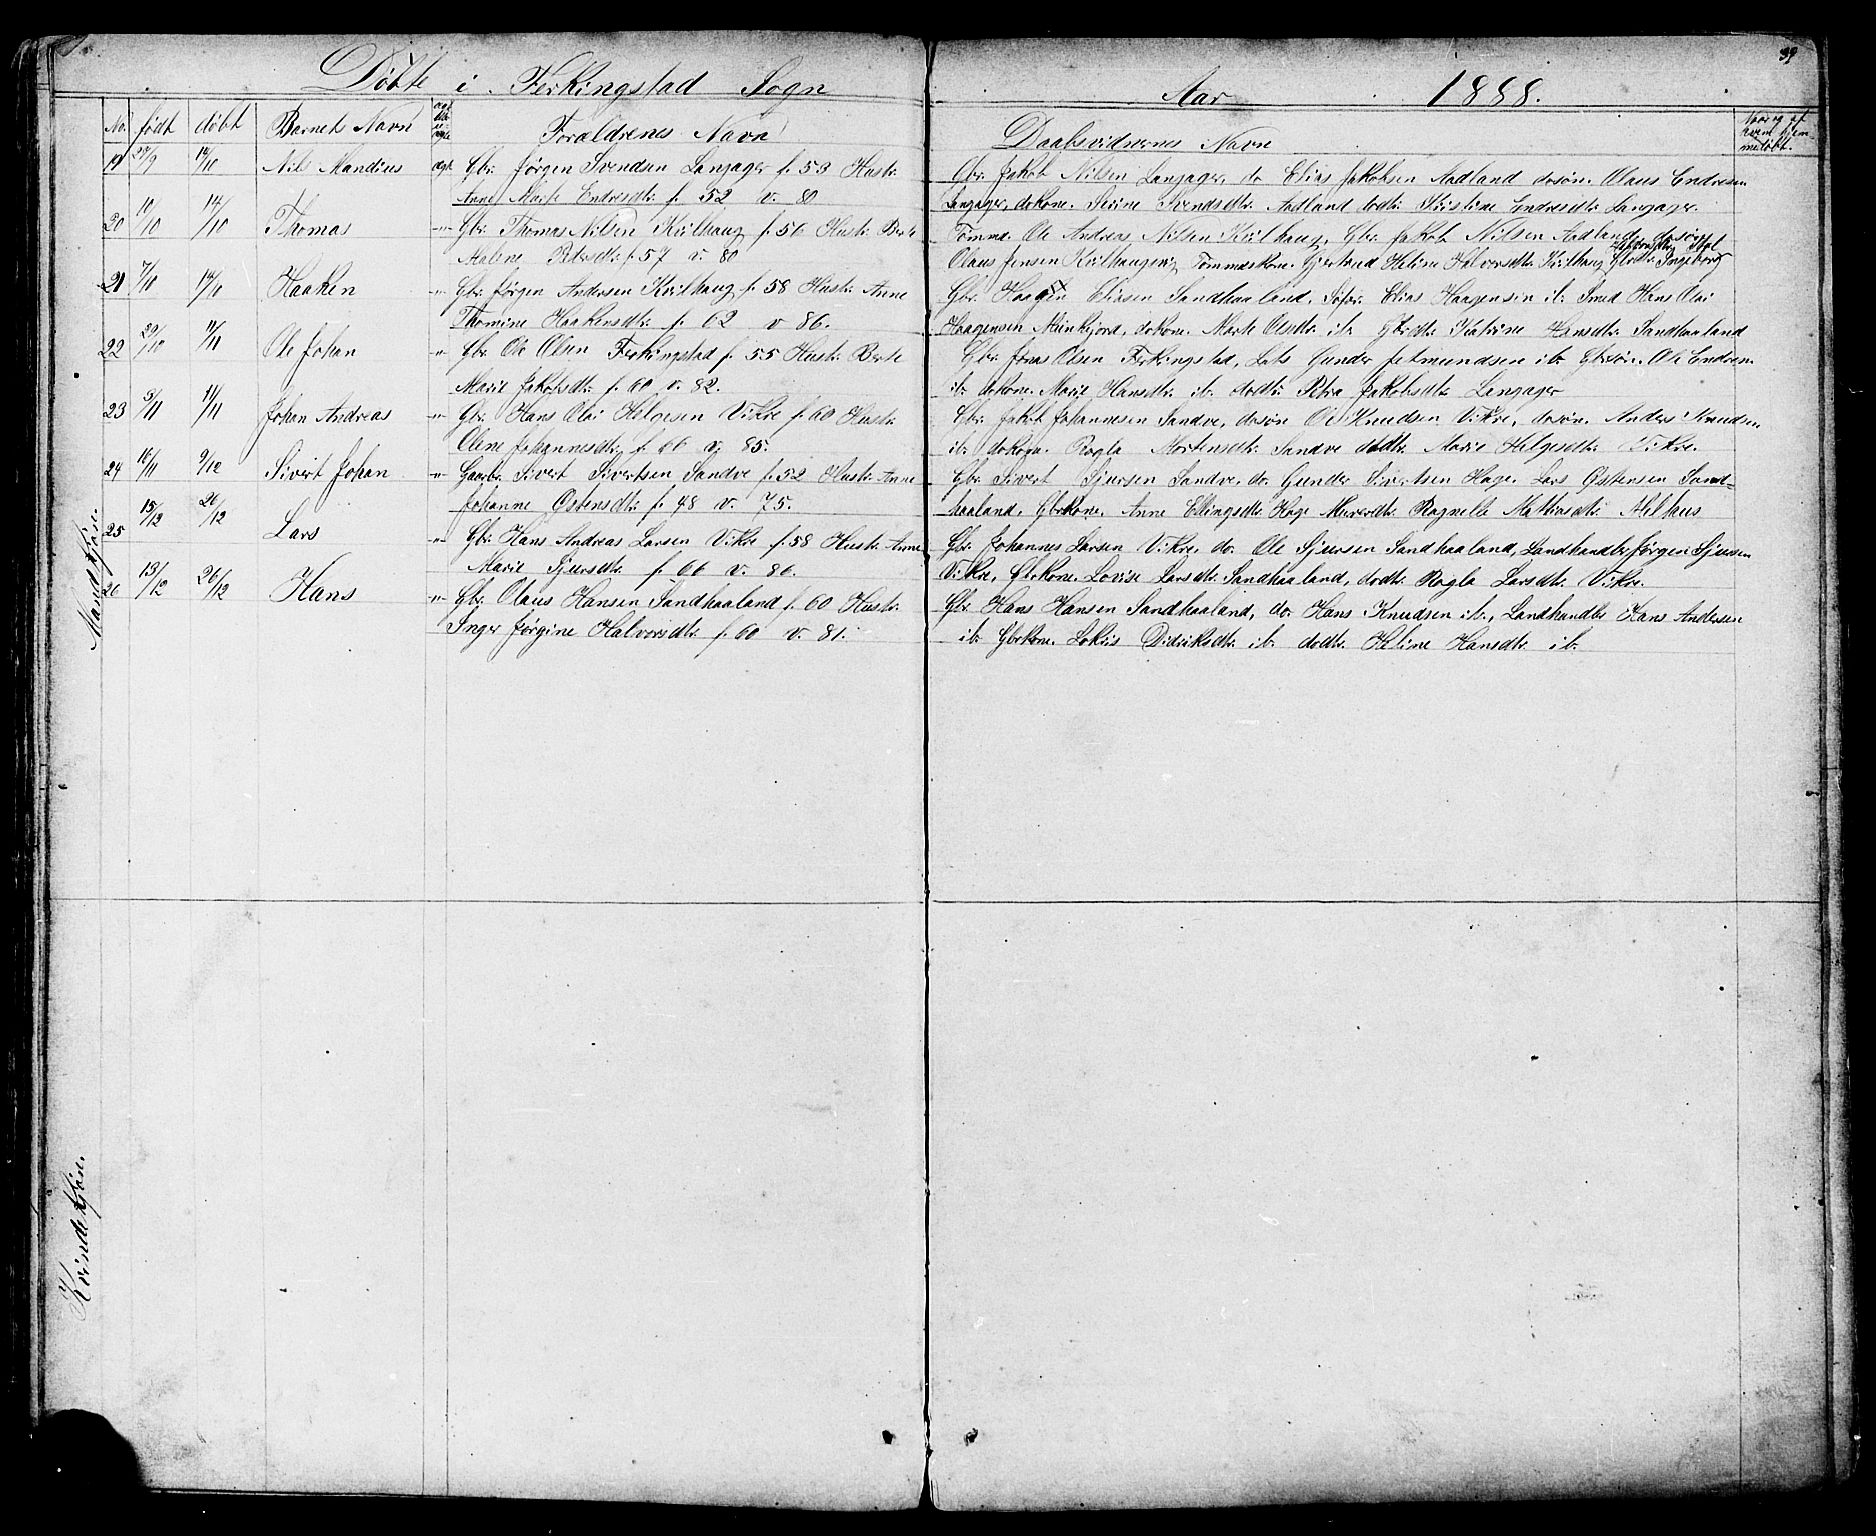 39
Døbte i Ferkingstad Sogn Aar 1888.
No. født døbt Barnets Navn Forældrenes Navn Daabsvidnernes Navn
Mandkjøn.
19 27/9 14/10 Nils Mandius ægt Gbr. Jørgen Svendsen Langager f. 53 Hustr. Gbr. Jakob Nilsen Langager, do Elias Jakobsen Aadland dosøn. Olaus Endresen
Anne Marte Endresdtr. f. 52 v. 80 Langager, dokone. Serine Svendsdtr. Aadland dodtr. Kristine Endresdtr. Langager.
20 10/10 14/10 Thomas -"- Gbr. Thomas Nilsen Kvilhaug f. 56 Hustr. Berte Tømmd. Ole Andreas Nilsen Kvilhaug, Gbr. Jakob Nilsen Aadland, dosøn
Malene Pedersdtr. f. 57 v. 80 Olaus Jensen Kvilhaugen, Tømmdskone. Gjertrud Heline Halvorsdtr. Kvilhaug Gbrdtr. Ingeborg
21 7/10 14/10 Haaken -"- Gbr. Jørgen Andersen Kvilhaug f. 58 Hustr. Anne Gbr. Haagen Eliasen Sandhaaland, Søfar. Elias Haagensen ib. Smed Hans Olai
Thomine Haakensdtr. f. 62 v 86. Haagensen Munkejord, dokone. Marte Olsdtr. ib. Gbrdtr. Katrine Hansdtr. Sandhaaland
22 29/10 11/11 Ole Johan -"- Gbr. Ole Olsen Ferkingstad f. 55 Hustr. Berte Gbr. Jonas Olsen Ferkingstad, Lods Gunder Jetmundsen ib. Gbrsøn. Ole Endresen
Marie Jakobsdtr. f. 60 v. 82. ib. dokone. Marie Hansdtr. ib. dodtr. Petra Jakobsdtr. Langager
23 5/11 11/11 Johan Andreas -"- Gbr. Hans Olai Helgesen Vikre f. 60 Hustr. Gbr. Jakob Johannesen Sandve, dosøn Ole Knudsen Vikre, dosøn. Anders Knudsen
Oline Johannesdtr. f. 66 v. 85. ib. dokone. Ragla Mortensdtr. Sandve dodtr. Marie Helgesdtr. Vikre.
24 16/11 9/12 Sivert Johan -"- Gaardbr. Sivert Sivertsen Sandve f. 52 Hustr. Anne Gbr. Sivert Sjursen Sandve, do. Gunder Sivertsen Hage. Lars Østensen Sand-
Johanne Østensdtr. f. 48 v. 75. haaland, Gbrkone. Anne Ellingsdtr. Hage Murerdtr. Ragnelle Mathiasdtr. Melhaus
25 15/12 26/12 Lars -"- Gbr. Hans Andreas Larsen Vikre f. 58 Hustr. Anne Gbr. Johannes Larsen Vikre, do. Ole Sjursen Sandhaaland, Landhandler Jørgen Sjursen
Marie Sjursdtr. f. 66 v. 86. Vikre, Gbrkone. Lovise Larsdtr. Sandhaaland, dodtr. Ragla Larsdtr. Vikre.
26 13/12 26/12 Hans -"- Gbr. Olaus Hansen Sandhaaland f. 60 Hustr. Gbr. Hans Hansen Sandhaaland, do. Hans Knudsen ib., Landhandler Hans Andersen
Inger Jørgine Halvorsdtr. f. 60 v. 81. ib. Gbrkone. Didriksdtr. ib. dodtr. Heline Hansdtr. ib.
Kvindekjøn.